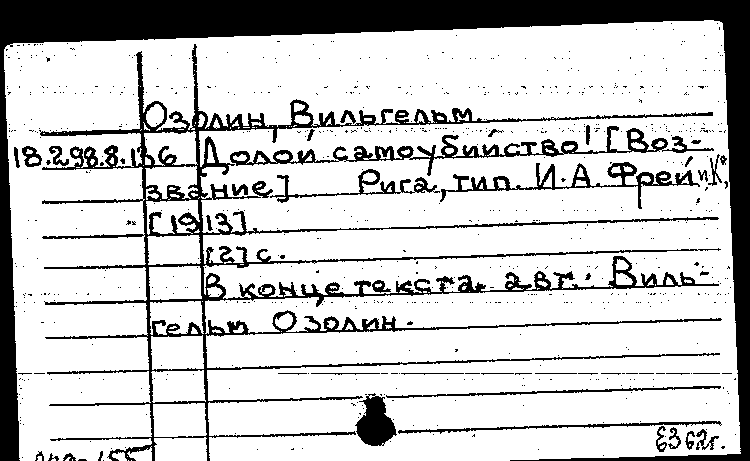 Озолин, Вильгельм.
18.298.8.136 Долой самоубийство! [Воз-
звание] Рига, тип. И.А. Фрей и К°,
[1913].
[2] с.
В конце текста авт.: Виль-
гельм Озолин.